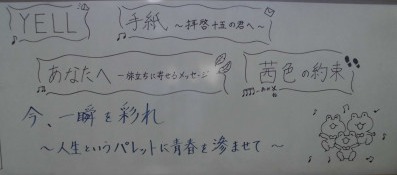 YELL
手紙 ～拝啓 十五の君へ～
あなたへ ー旅立ちに寄せるメッセージ
茜色の約束
今、一瞬を彩れ
～人生というパレットに青春を滲ませて～